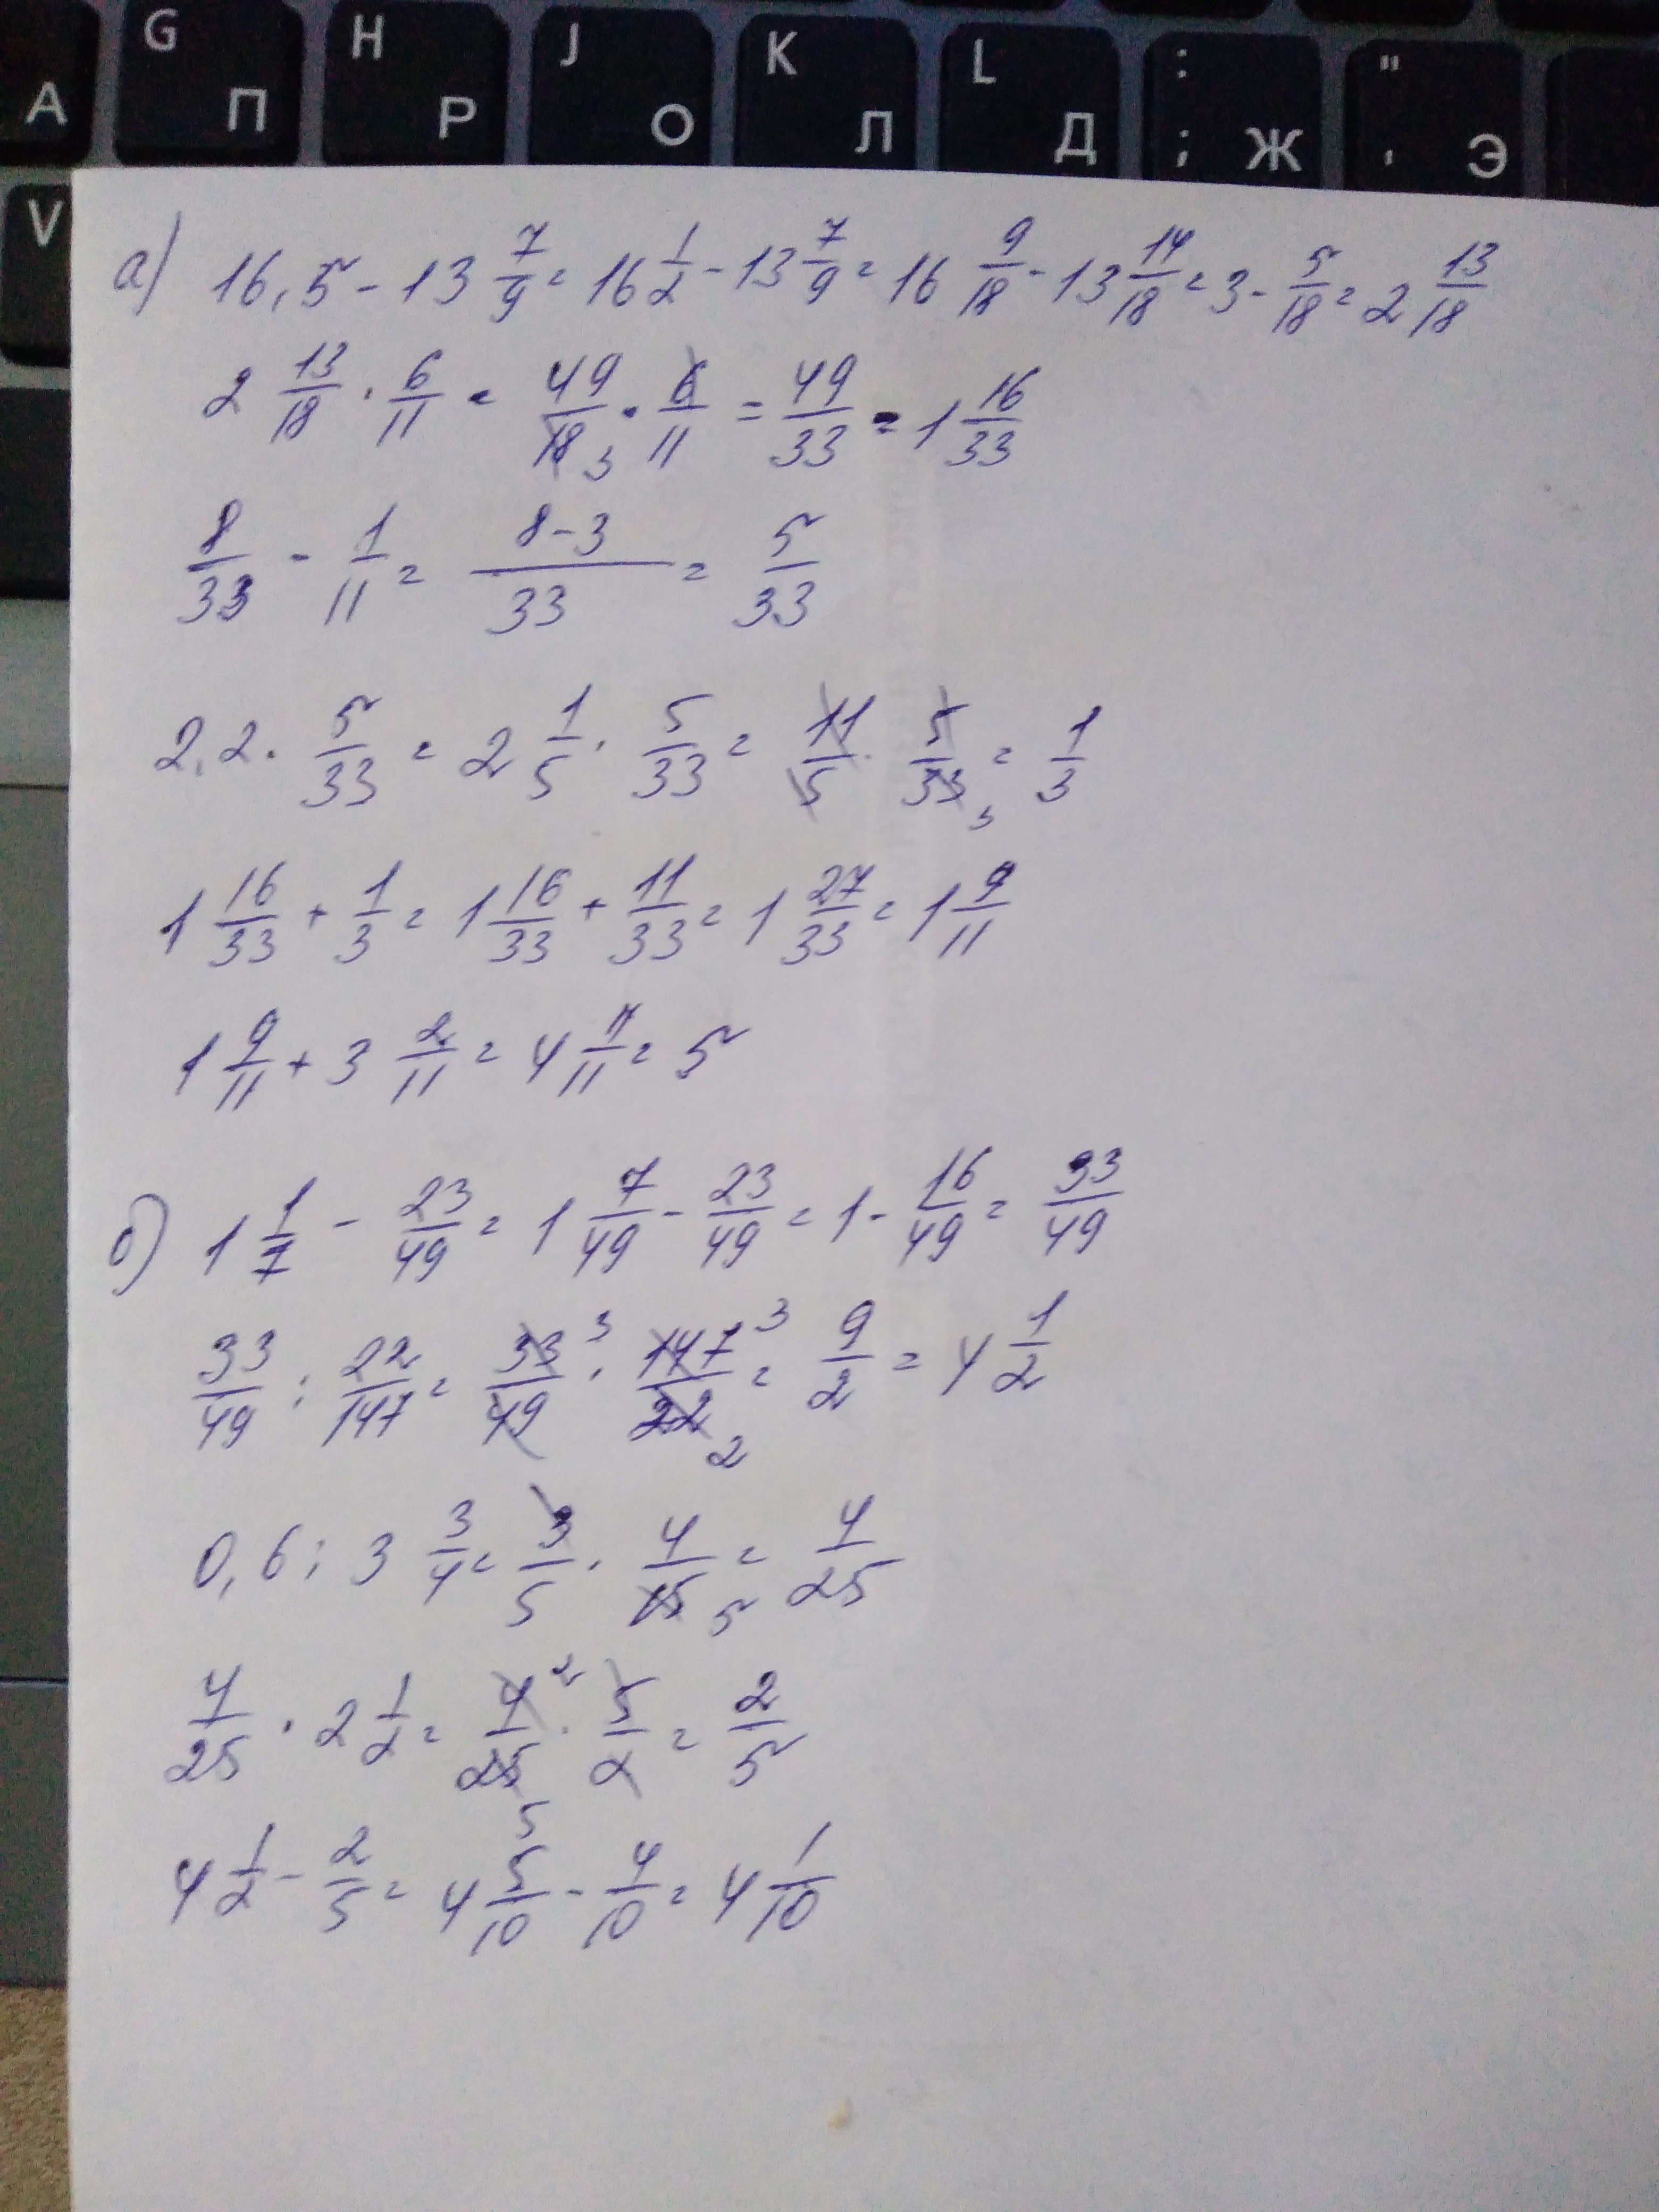 G H J K L : "
А П Р О Л Д ; Ж ' Э
V
а) 16,5 - 13 7/9 = 16 1/2 - 13 7/9 = 16 9/18 - 13 14/18 = 3 - 5/18 = 2 13/18
2 13/18 · 6/11 = 49/18 3 · 6/11 = 49/33 = 1 16/33
8/33 - 1/11 = 8-3/33 = 5/33
2,2 · 5/33 = 2 1/5 · 5/33 = 11/5 · 5/33 3 = 1/3
1 16/33 + 1/3 = 1 16/33 + 11/33 = 1 27/33 = 1 9/11
1 9/11 + 3 2/11 = 4 11/11 = 5
б) 1 1/7 - 23/49 = 1 7/49 - 23/49 = 1 - 16/49 = 33/49
33/49 : 22/147 = 33 3/49 · 147 3/22 2 = 9/2 = 4 1/2
0,6 : 3 3/4 = 3/5 · 4/15 5 = 4/25
4/25 · 2 1/2 = 4 2/25 5 · 5/2 = 2/5
4 1/2 - 2/5 = 4 5/10 - 4/10 = 4 1/10